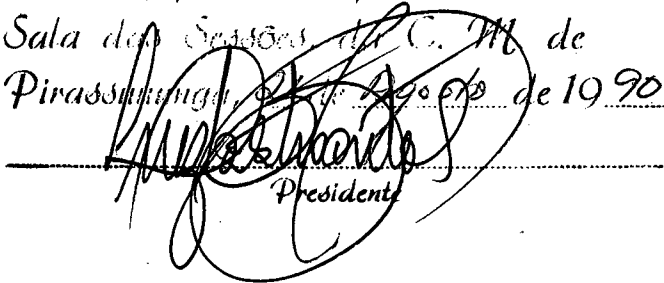 Sala das Sessões, da C. M. de
Pirassununga, de Agosto de 1990
Presidente